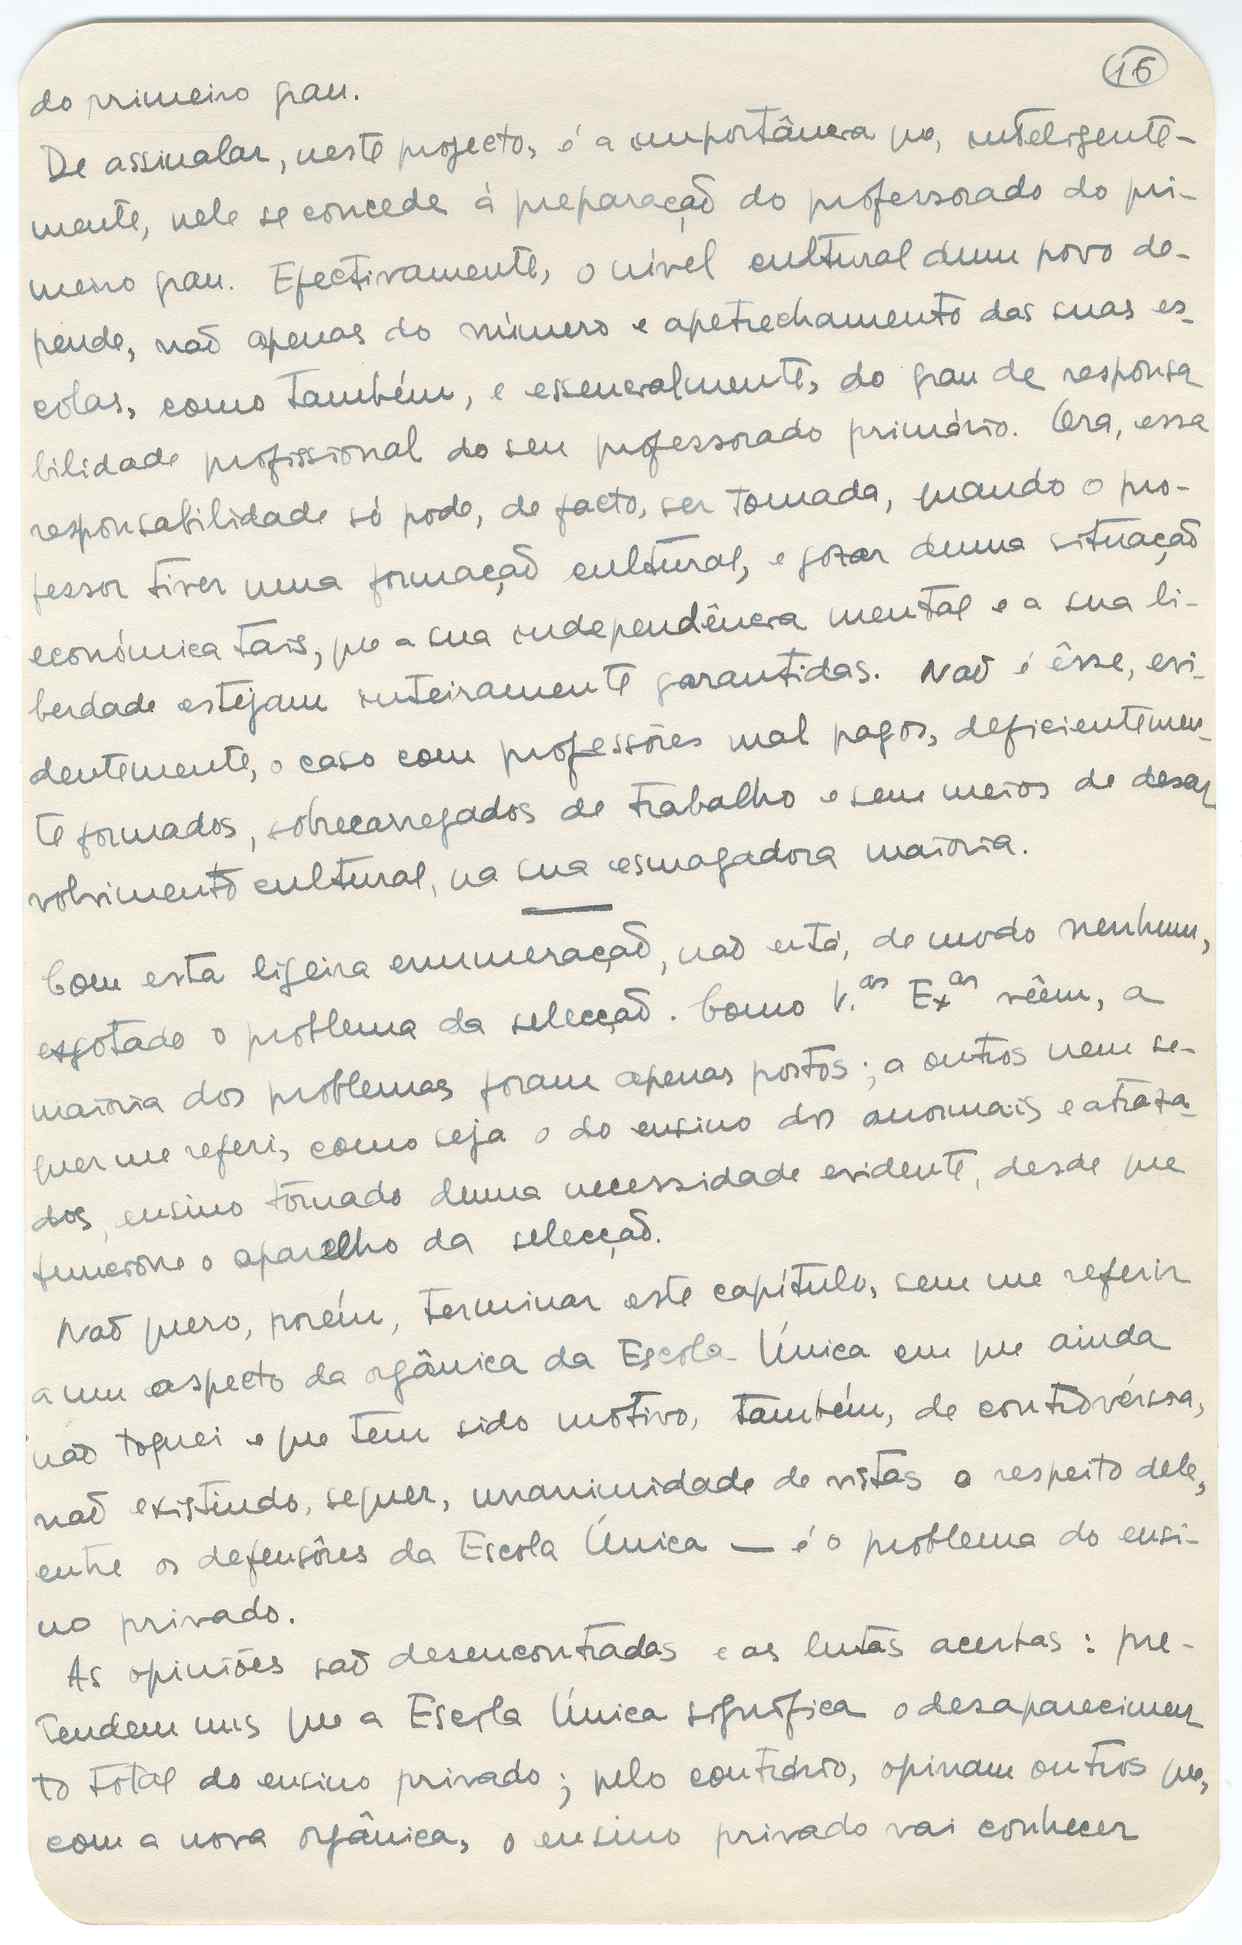 16
do primeiro grau.
De assinalar, neste projecto, é a importância que, inteligente-
mente, nele se concede à preparação do professorado do pri-
meiro grau. Efectivamente, o nível cultural dum povo de-
pende, não apenas do número e apetrechamento das suas es-
colas, como também, e essencialmente, do grau de responsa
bilidade profissional do seu professorado primário. Ora, essa
responsabilidade só pode, de facto, ser tomada, quando o pro-
fessor tiver uma formação cultural, e gozar duma situação
económica tais, que a sua independência mental e a sua li-
berdade estejam inteiramente garantidas. Não é êsse, evi-
dentemente, o caso com professôres mal pagos, deficientemen-
te formados, sobrecarregados de trabalho e sem meios de desen
volvimento cultural, na sua esmagadora maioria.
Com esta ligeira enumeração, não está, de modo nenhum,
esgotado o problema da selecção. Como V.as Ex.as vêem, a
maioria dos problemas foram apenas postos; a outros nem se-
quer me referi, como seja o do ensino dos anormais e atraza-
dos, ensino tornado duma necessidade evidente, desde que
funcione o aparelho da selecção.
Não quero, porém, terminar este capítulo, sem me referir
a um aspecto da orgânica da Escola Única em que ainda
não toquei e que tem sido motivo, também, de controvérsia,
não existindo, sequer, unanimidade de vistas a respeito dele,
entre os defensôres da Escola Única — é o problema do ensi-
no privado.
As opiniões são desencontradas e as lutas acerbas: pre-
tendem uns que a Escola Única significa o desaparecimen
to total do ensino privado; pelo contrário, opinam outros que,
com a nova orgânica, o ensino privado vai conhecer